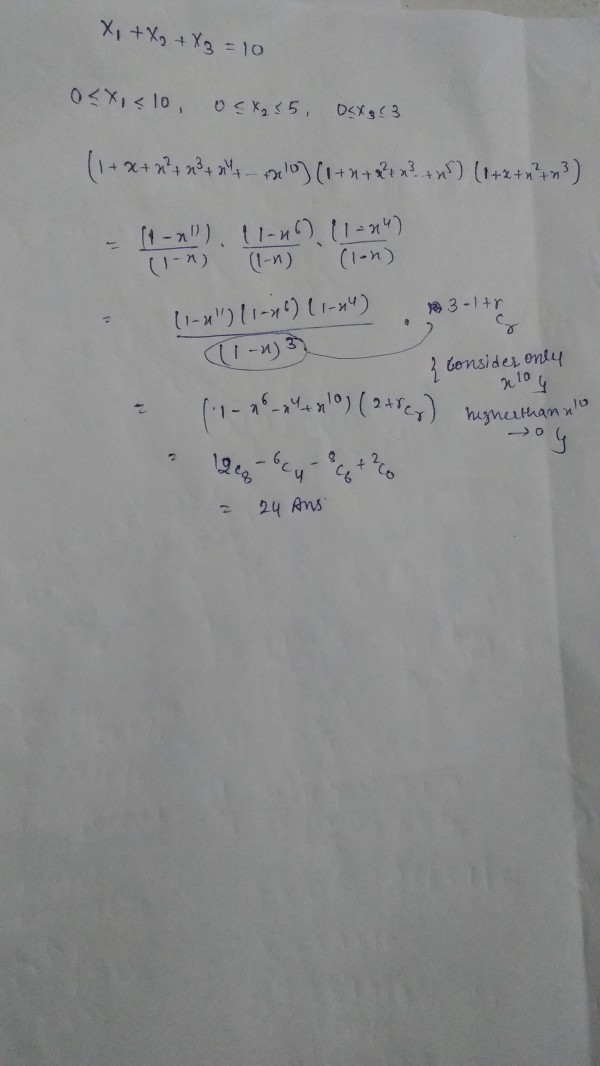 x₁ + x₂ + x₃ = 10
0 ≤ x₁ ≤ 10, 0 ≤ x₂ ≤ 5, 0 ≤ x₃ ≤ 3
(1+x+x²+x³+x⁴+---+x¹⁰) (1+x+x²+x³..+x⁵) (1+x+x²+x³)
= (1-x¹¹)/(1-x) . (1-x⁶)/(1-x) . (1-x⁴)/(1-x)
= (1-x¹¹)(1-x⁶)(1-x⁴)/(1-x)³ . ³⁻¹⁺ʳCᵣ
{ consider only x¹⁰ }
= (1-x⁶-x⁴+x¹⁰) (²⁺ʳCᵣ) higher than x¹⁰ → 0 }
= 12C₈ - ⁶C₄ - ⁸C₆ + ²C₀
= 24 Ans